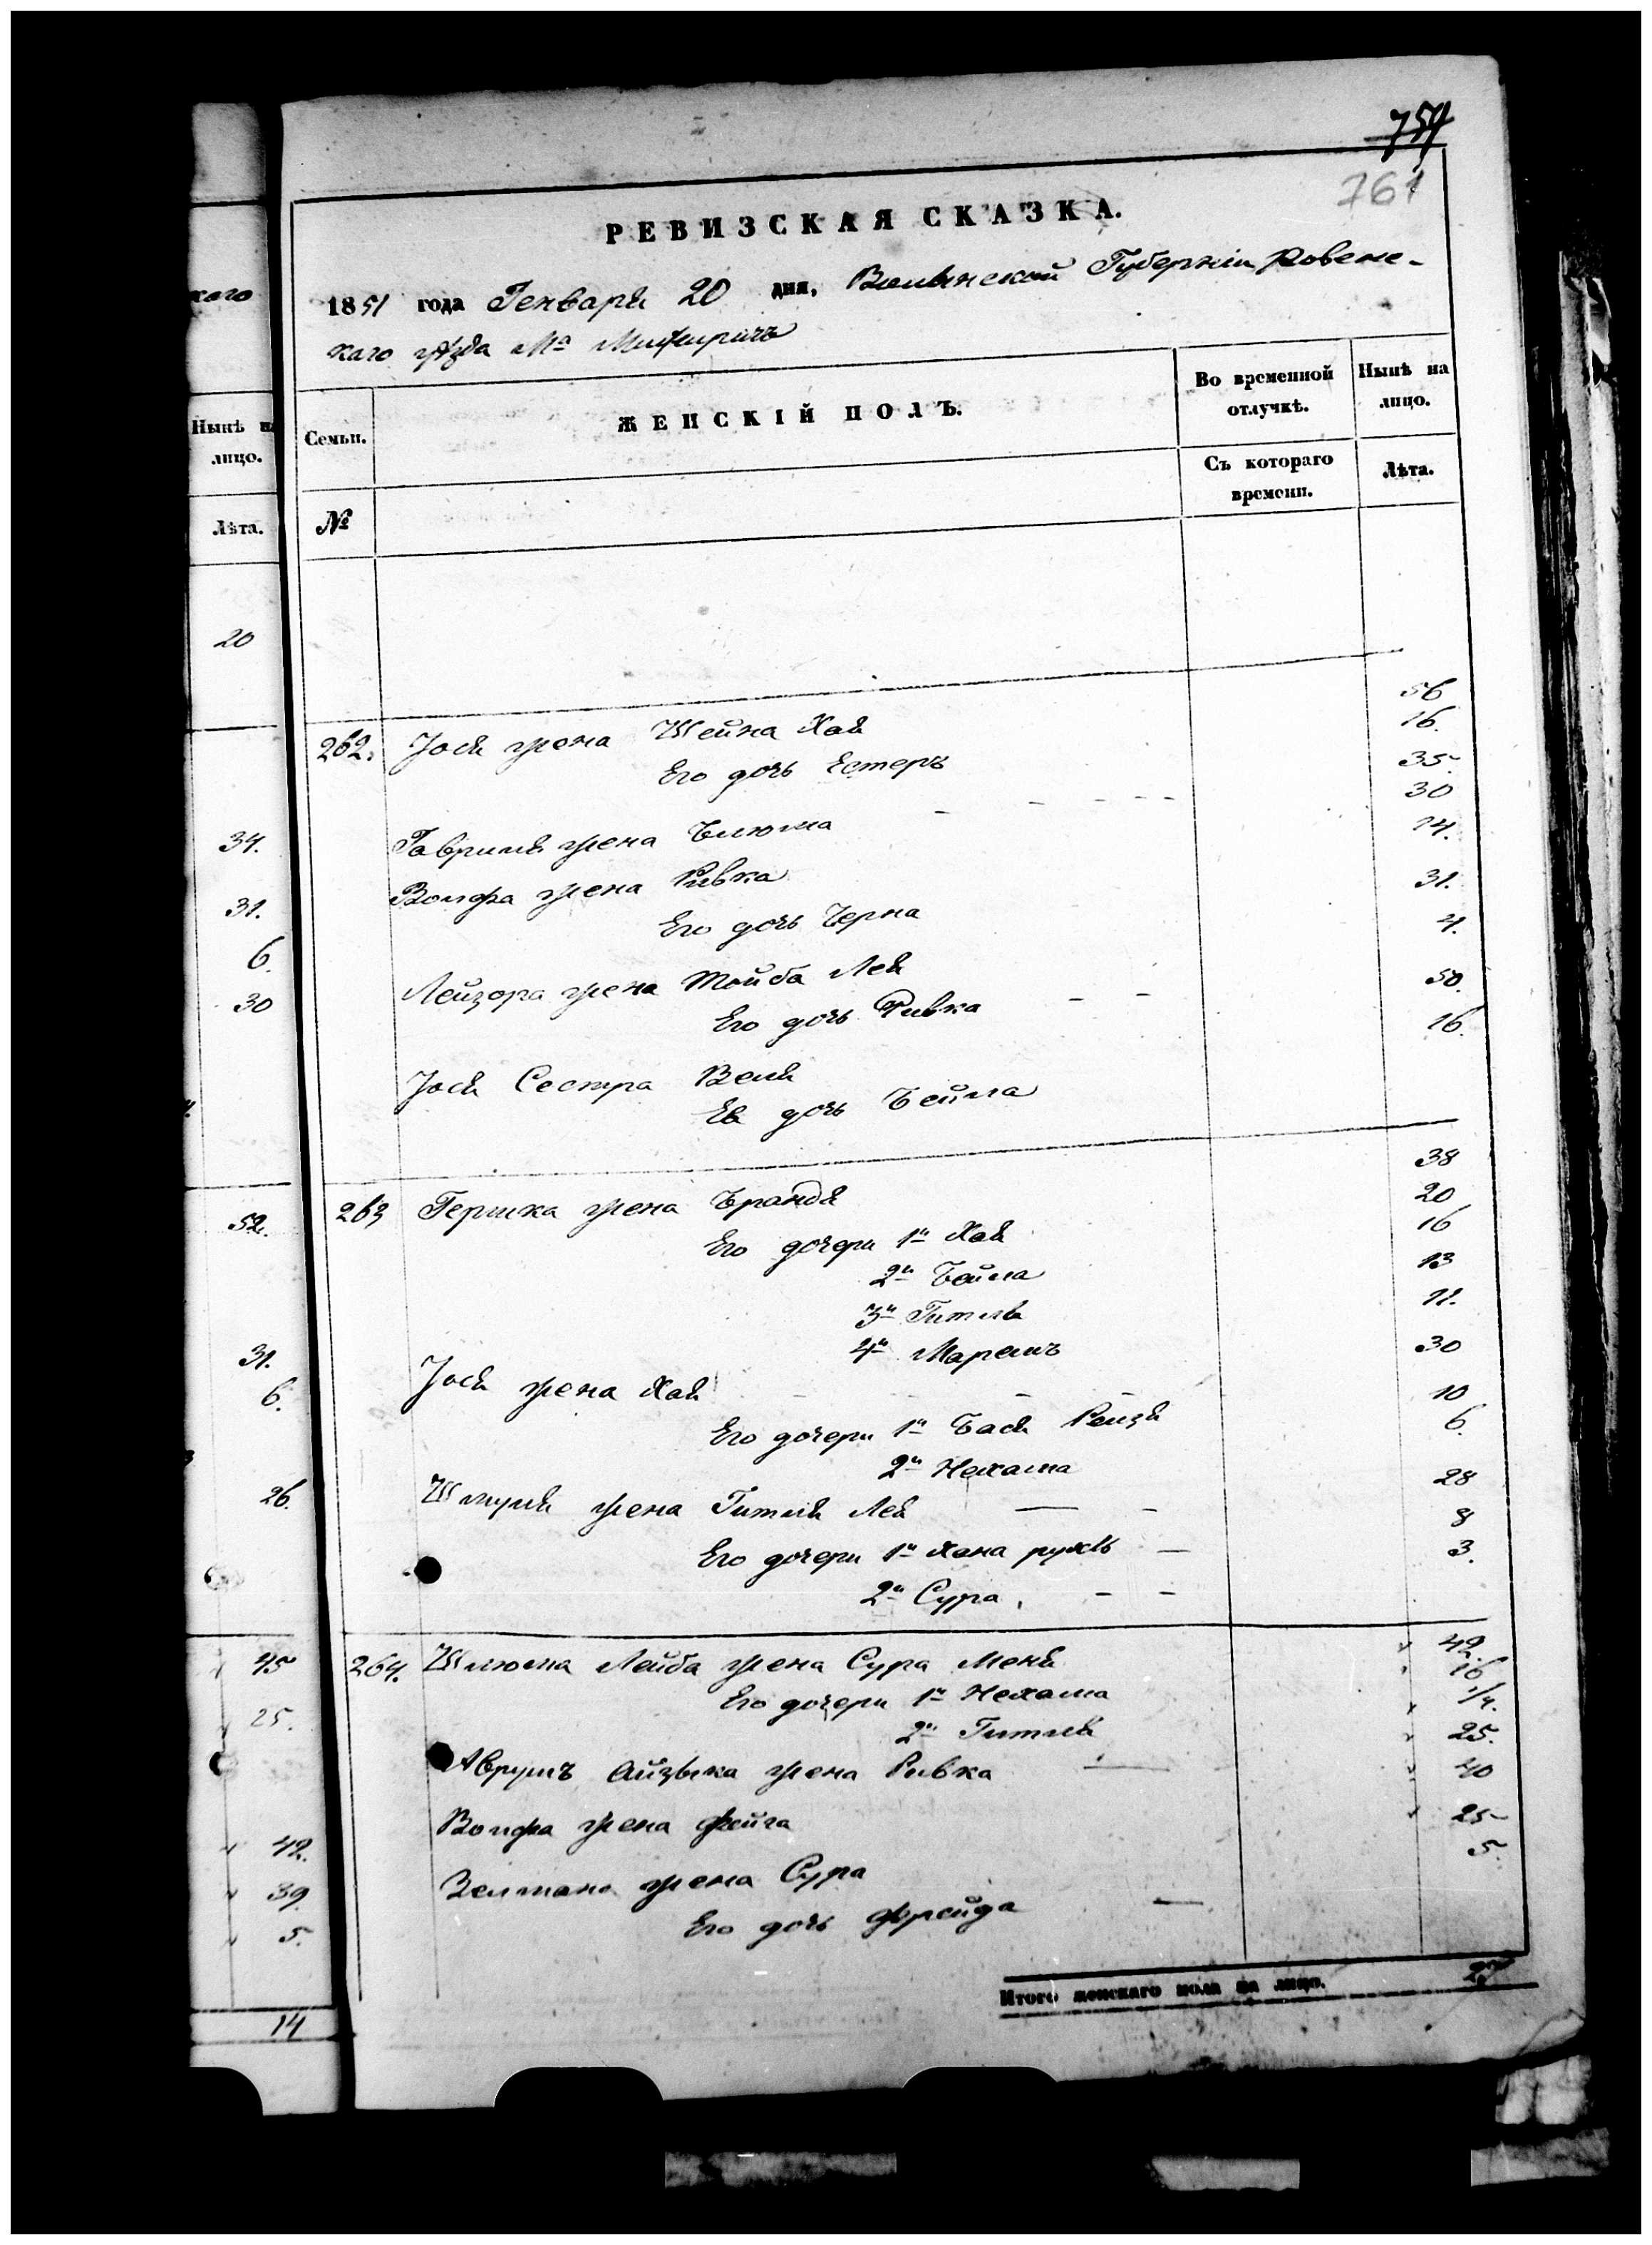 759
761
РЕВИЗСКАЯ СКАЗКА.
1851 года Генваря 20 дня, Волынской Губерніи Ровенс-
каго уѣзда Мѣ Межиричъ
каго
Семьи.
ЖЕНСКІЙ ПОЛЪ.
Во временной отлучкѣ.
Нынѣ на лицо.
Нынѣ на лицо.
№
Съ котораго времени.
Лѣта.
Лѣта.
20
262. Іося жена Шейна Хая 56
Его дочь Естеръ 16.
Гавриля жена Блюма 35.
Волфа жена Ривка 30
Его дочь Черна 14.
Лейзора жена Тойба Лея 31.
Его дочь Ривка 4.
Іося Сестра Веля 50.
Ея дочь Бейла 16.
34.
31.
6.
30
263 Гершка жена Брандя 38
Его дочери 1я Хая 20
2я Бейла 16
3я Гитля 13
4я Маремъ 11.
Іося жена Хая 30
Его дочери 1я Бася Рейзя 10
2я Нехама 6.
Шмуля жена Гитля Лея 28
Его дочери 1я Хана рухль 8
2я Сура 3.
52.
31.
6.
26.
264. Шлюма Лейба жена Сура Меня 42.
Его дочери 1я Нехама 16
2я Гитля 1/4.
Аврумъ Айзыка жена Ривка 25.
Волфа жена Фейга 40
Зелмана жена Сура 25
Его дочь Фрейда 5.
45
25.
42.
39.
5.
Итого женскаго пола на лицо. 27
14